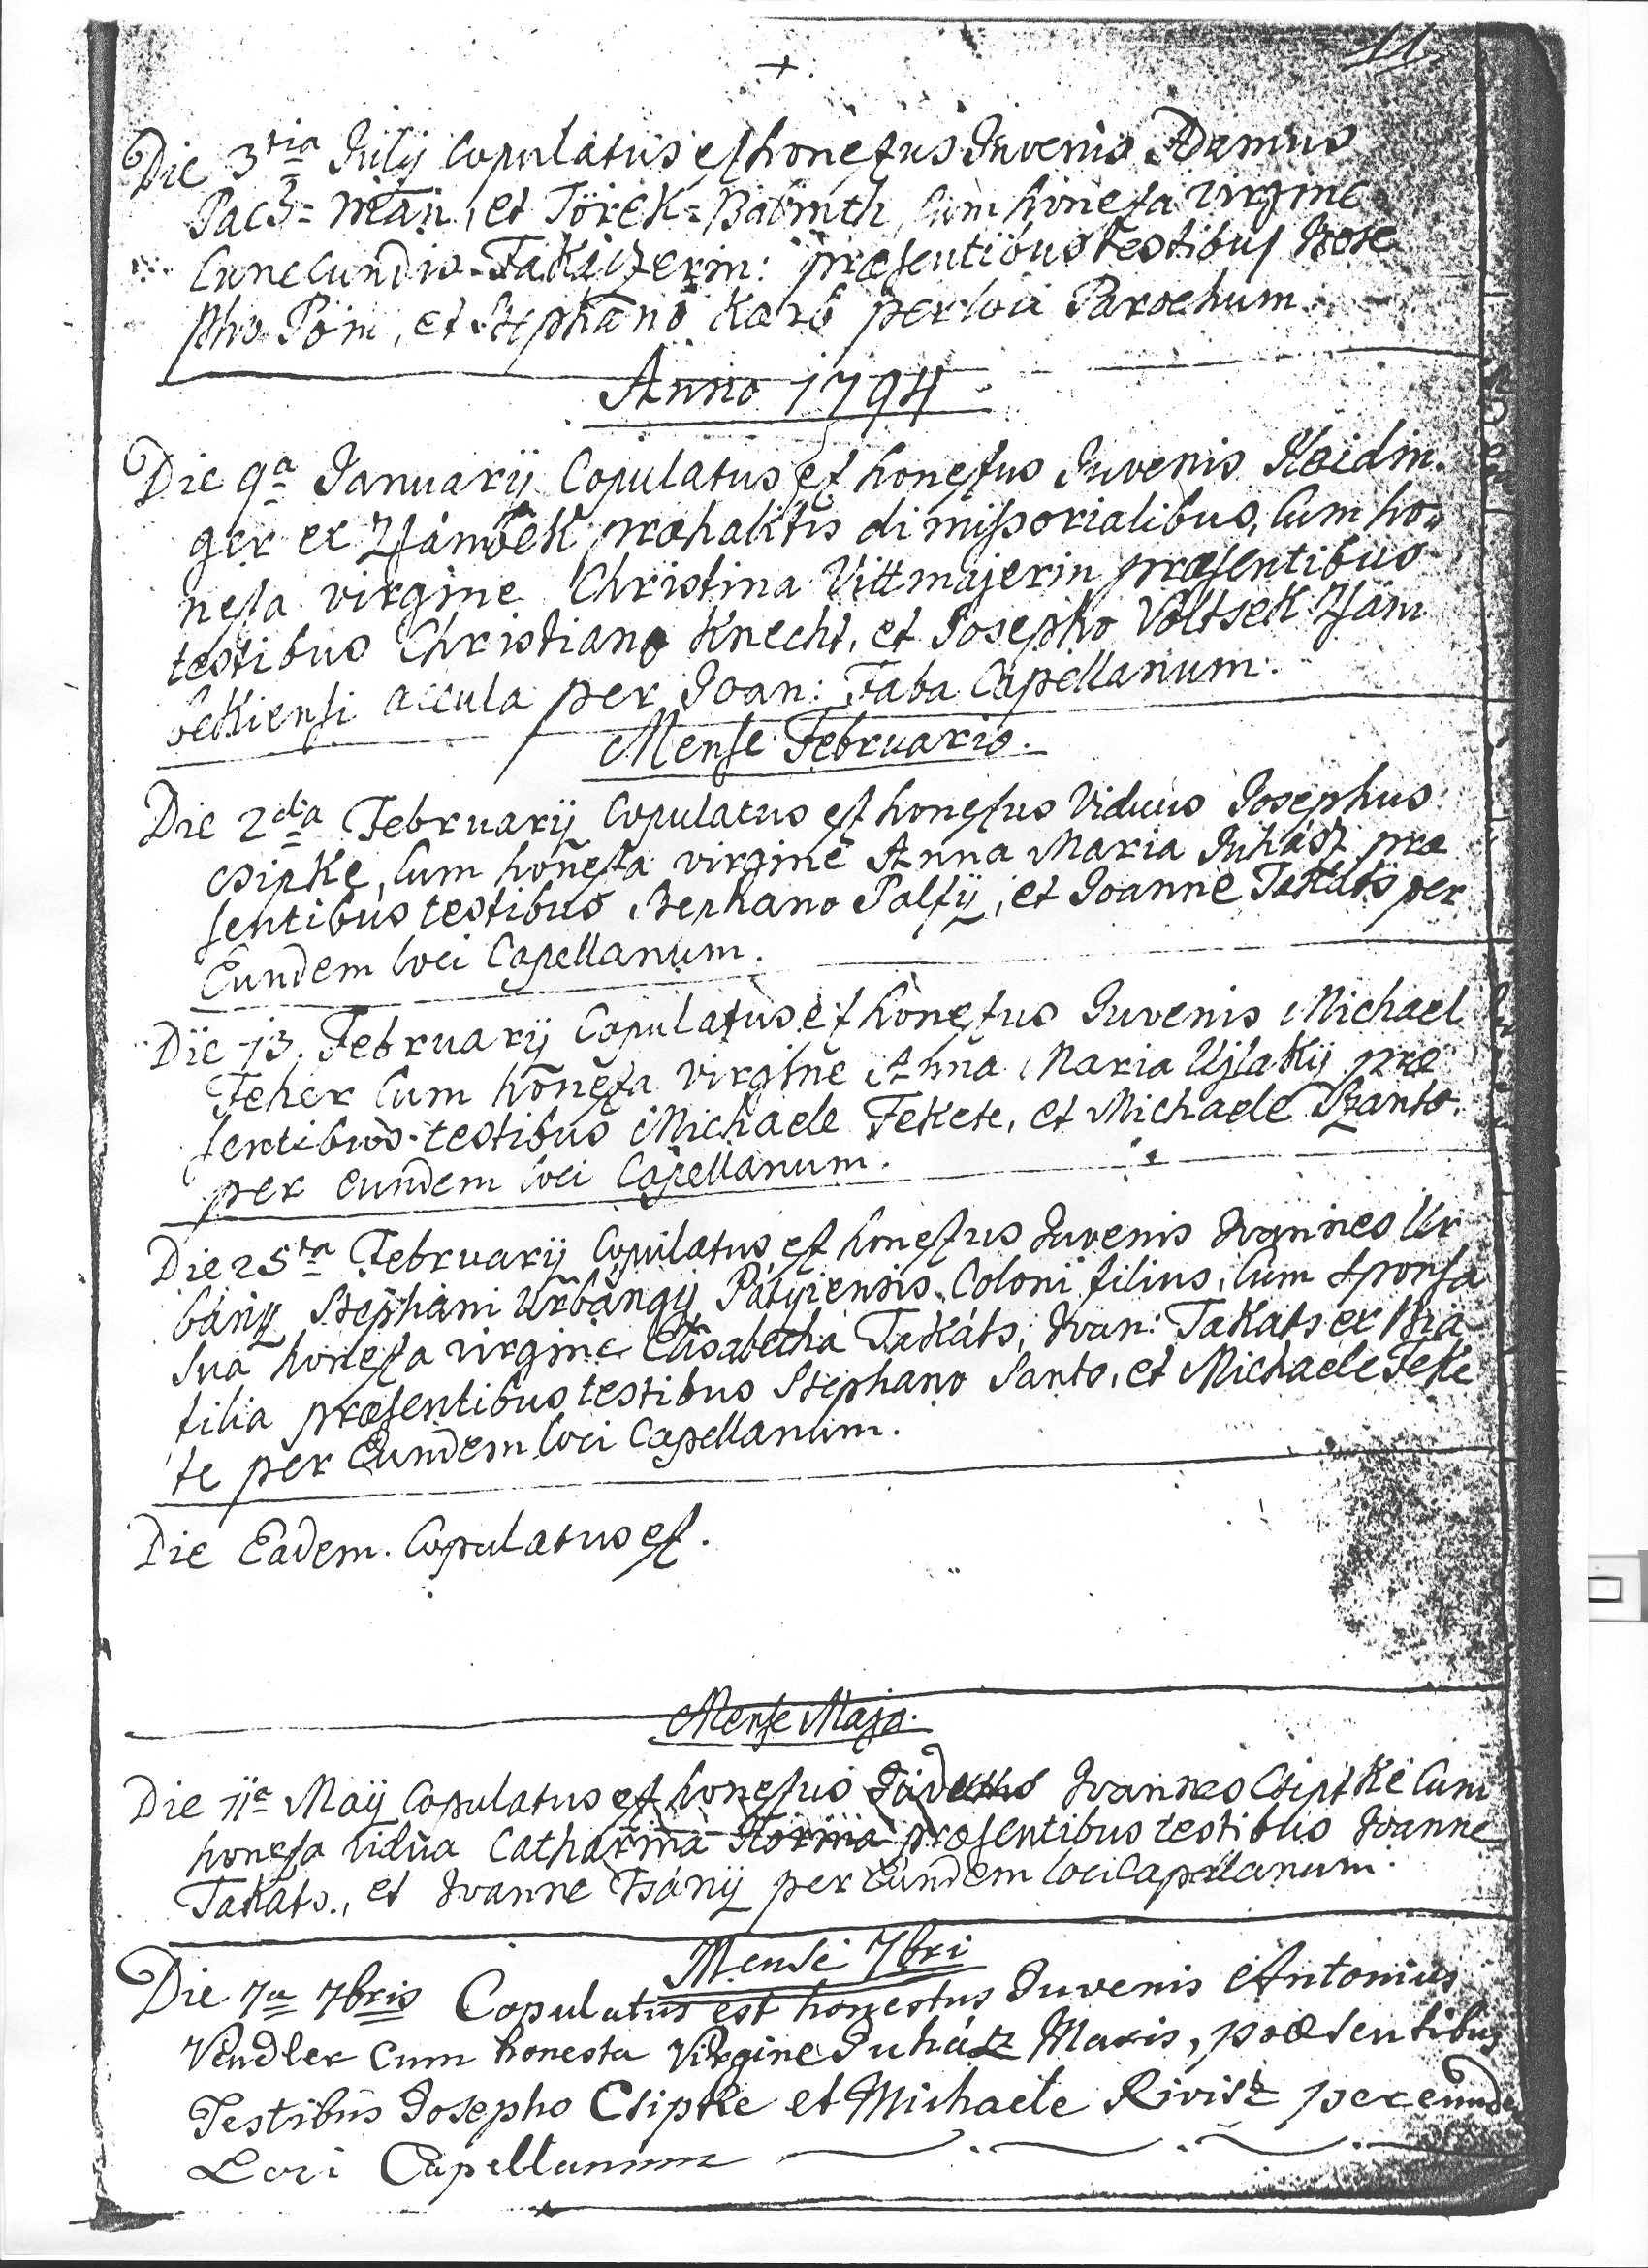 11.
Die 3tia Julij Copulatus est honestus Juvenis Adamus
Pacz=man, et Törek=Balinth, Cum honesta virgine
Cunecundis Takaczerin: præsentibus Testibus Jose
pho Pöm, et Stephano Karb per loci Parochum.
Anno 1794
Die 9a Januarij Copulatus est honestus Juvenis Haidin
ger ex Zsámbék præhabitis dimissorialibus, Cum ho=
nesta virgine Christina Vittmajerin præsentibus
testibus Christiano Knecht, et Josepho Voltsek Zsám
bekiensi accula per Joan: Faba Capellanum.
Mense Februario.
Die 2dia Februarij Copulatus est honestus Viduus Josephus
Csipke, Cum honesta virgine Anna Maria Juhász præ
sentibus testibus Stephano Palfij, et Joanne Takáts per
Eundem loci Capellanum.
Die 13. Februarij Copulatus est honestus Juvenis Michael
Feher Cum honesta virgine Anna Maria Ujlakij præ
sentibus testibus Michaele Fekete, et Michaele Szanto.
per eundem loci Capellanum.
Die 25ta Februarij Copulatus est honestus Juvenis Joannes Ur
bánij Stephani Urbángij Pátyiensis Coloni filius, Cum sponsa
sua honesta virgine Elisabetha Takáts, Joan: Takats ex Bia
filia præsentibus testibus Stephano Santo, et Michaele Feke
te per Eundem loci Capellanum.
Die Eadem. Copulatus est.
Mense Majo.
Die 11a Maij Copulatus est honestus Joannes Csiptke Cum
honesta vidua Catharina præsentibus testibus Joanne
Takats., et Joanne Tsánij per Eundem loci Capellanum.
Mense 7bri
Die 7a 7bris Copulatus est honestus Juvenis Antonius
Vendler Cum honesta Virgine Juhász Maris, præsentibus
Testibus Josepho Csipke et Michaele Rivisz per eunde
Loci Capellanum